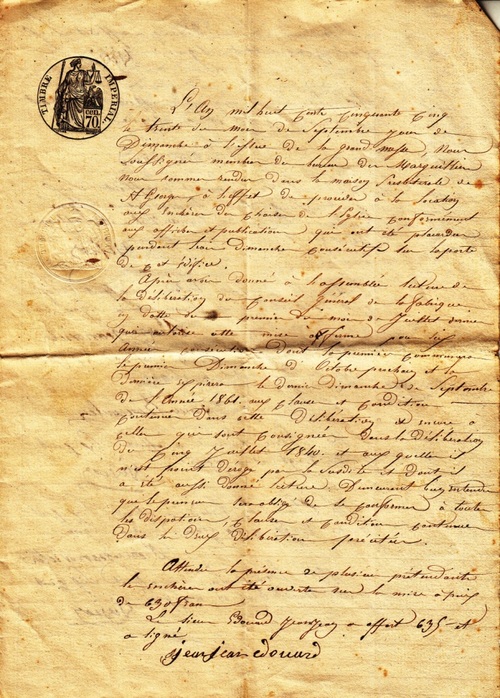 TIMBRE IMPERIAL
CEN. 70
L'An mil huit cents cinquante cinq
a trente du mois de Septembre jour de
Dimanche à l'issue de la grand messe Nous
Soussigner membres du bureau des Marguillier
Nous sommes rendus dans la maison Presbiterale de
St , à l'effet de proceder à la location
aux Enchère des chaises de l'Eglise Conformément
aux affiches et publication qui ont été placardées
pendant trois dimanches consécutifs sur la porte
de cet édifice.
Après avoir donné à l'assemblée lecture de
la Délibération du Conseil General de la fabrique
en datte du premier du mois de Juillet dernier
qui autorise cette mise afferme pour six
Années consécutives dont la première commencera
le premier Dimanche d'Octobre prochain et la
dernière expirera le dernier dimanche de Septembre
de l'Année 1861. aux clauses et condition
contenues dans cette délibération et encore à
celles que sont consignées dans la délibération
du cinq Juillet 1840. et aux quelles il
n'est point derogé par la susdite et dont il
a été aussi donné lecture
que le preneur sera obligé de se conformer à toute
les dispositions, clauses et condition contenues
dans la deux délibération précitées.
Attendu la présence de plusieurs prétendants
les enchères ont été ouvertes sur la mise à prix
de 630 fran
Le sieur Edouard a offert 635 et
a signé
jean jean edouard